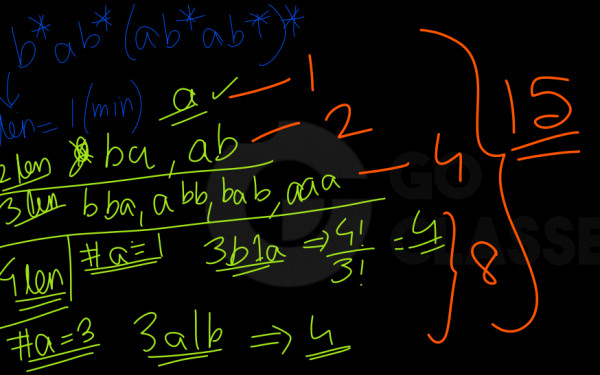 b*ab*(ab*ab*)*
len = 1(min) a ✓ 1
2 len ba, ab 2
3 len bba, abb, bab, aaa 4
15
4 len #a=1 3b1a ⇒ 4!/3! = 4
8
#a=3 3a1b ⇒ 4
GO
CLASSES